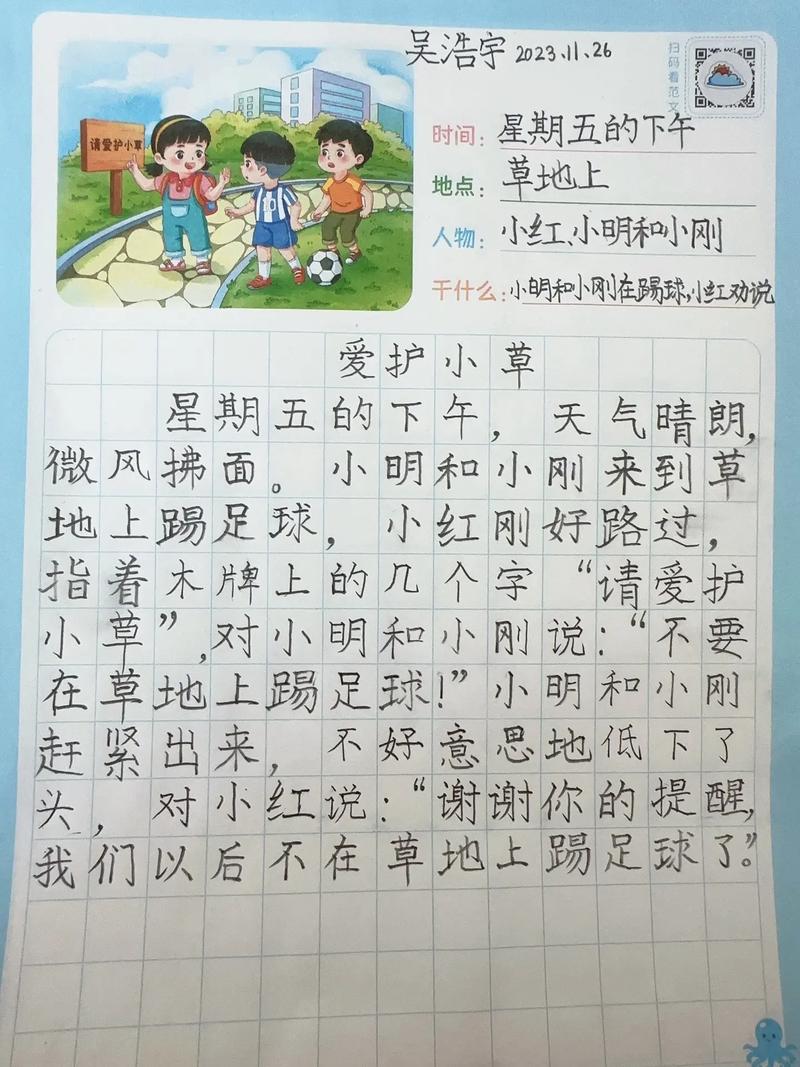 吴浩宇 2023.11.26
扫码看范文
请爱护小草
时间：星期五的下午
地点：草地上
人物：小红、小明和小刚
干什么：小明和小刚在踢球，小红劝说
10
爱护小草
星期五的下午，天气晴朗，
微风拂面。小明和小刚来到草
地上踢足球，小红刚好路过，
指着木牌上的几个字“请爱护
小草”，对小明和小刚说：“不要
在草地上踢足球！”小明和小刚
赶紧出来，不好意思地低下了
头，对小红说：“谢谢你的提醒，
我们以后不在草地上踢足球了。”